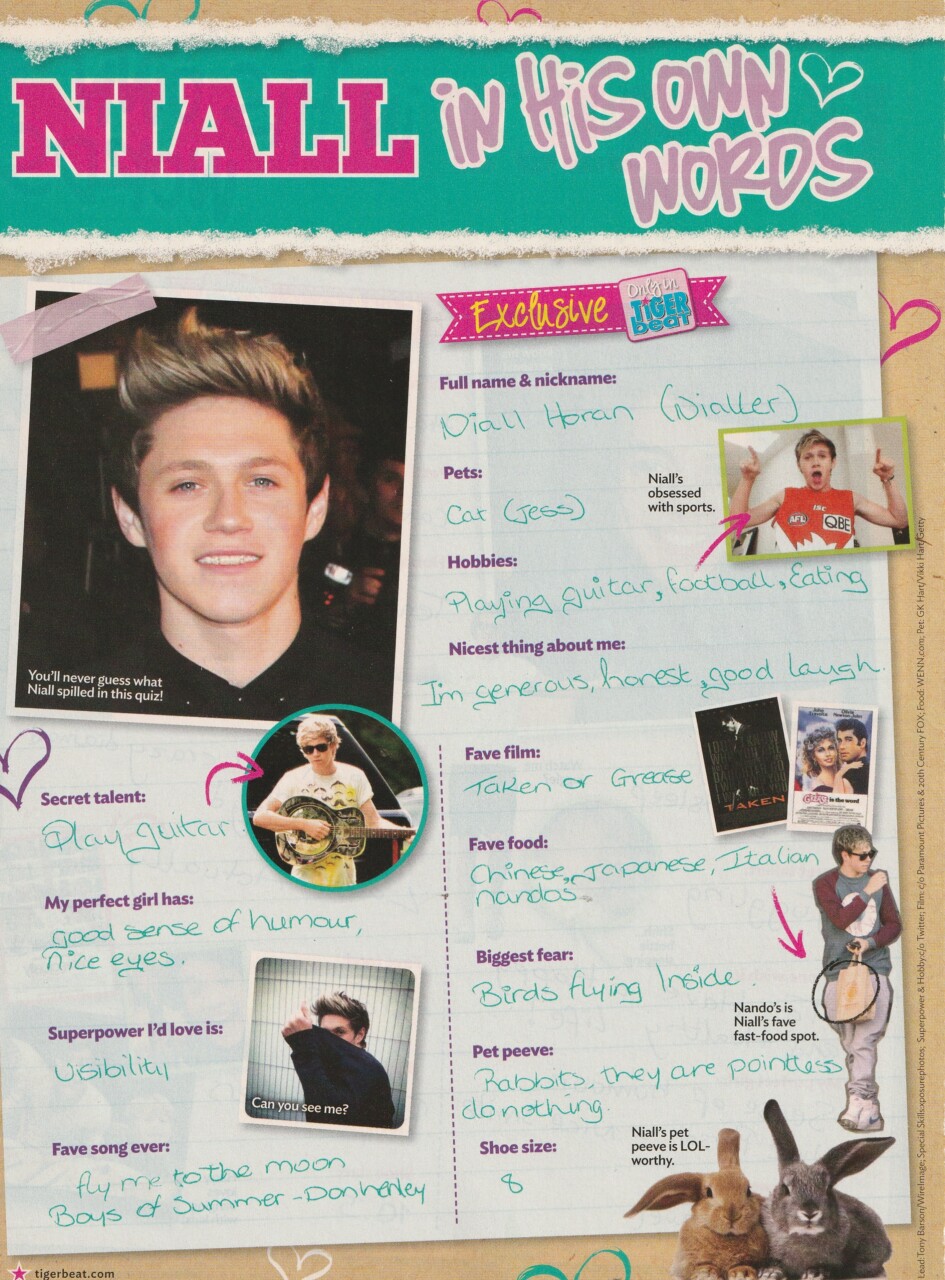 NIALL iN HiS OWN
WORDS
Exclusive
Only in
TiGER
beat
Full name & nickname:
Niall Horan (Nialler)
Pets:
Cat (Jess)
Niall's
obsessed
with sports.
ISC
AFL
QBE
Hobbies:
Playing guitar, football, Eating
Nicest thing about me:
I'm generous, honest, good laugh.
You'll never guess what
Niall spilled in this quiz!
Secret talent:
Play guitar
My perfect girl has:
good sense of humour,
nice eyes.
Superpower I'd love is:
visibility
Can you see me?
Fave song ever:
fly me to the moon
Boys of Summer - Don henley
Fave film:
Taken or Grease
TAKEN
Grease is the word
Fave food:
Chinese, Japanese, Italian
nandos
Biggest fear:
Birds flying Inside.
Nando's is
Niall's fave
fast-food spot.
Pet peeve:
Rabbits, they are pointless
do nothing.
Niall's pet
peeve is LOL-
worthy.
Shoe size:
8
Lead: Tony Barson/WireImage; Special Skills: xposurephotos; Superpower & Hobby: c/o Twitter; Film: c/o Paramount Pictures & 20th Century FOX; Food: WENN.com; Pet: GK Hart/Vikki Hart/Getty
tigerbeat.com